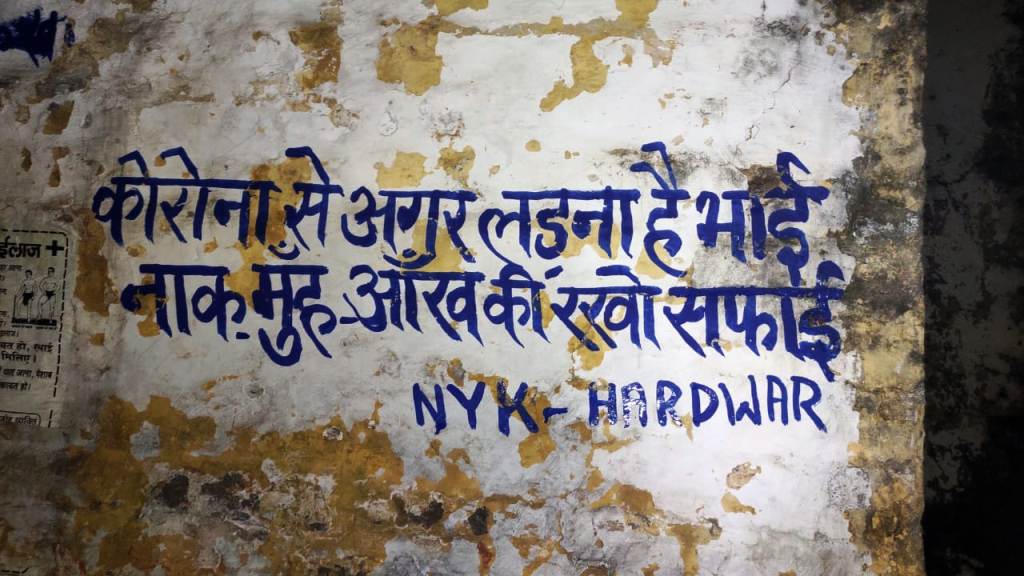 कोरोना से अगर लड़ना है भाई
नाक-मुँह-आँख की रखो सफाई
NYK - HARDWAR
ईलाज +
मिलिए।